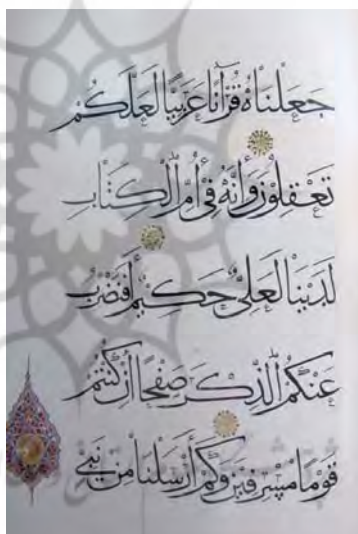 جَعَلْنَاهُ قُرْآنًا عَرَبِيًّا لَعَلَّكُمْ
تَعْقِلُونَ وَإِنَّهُ فِي أُمِّ الْكِتَابِ
لَدَيْنَا لَعَلِيٌّ حَكِيمٌ أَفَنَضْرِبُ
عَنْكُمُ الذِّكْرَ صَفْحًا أَنْ كُنْتُمْ
قَوْمًا مُسْرِفِينَ وَكَمْ أَرْسَلْنَا مِنْ نَبِيٍّ